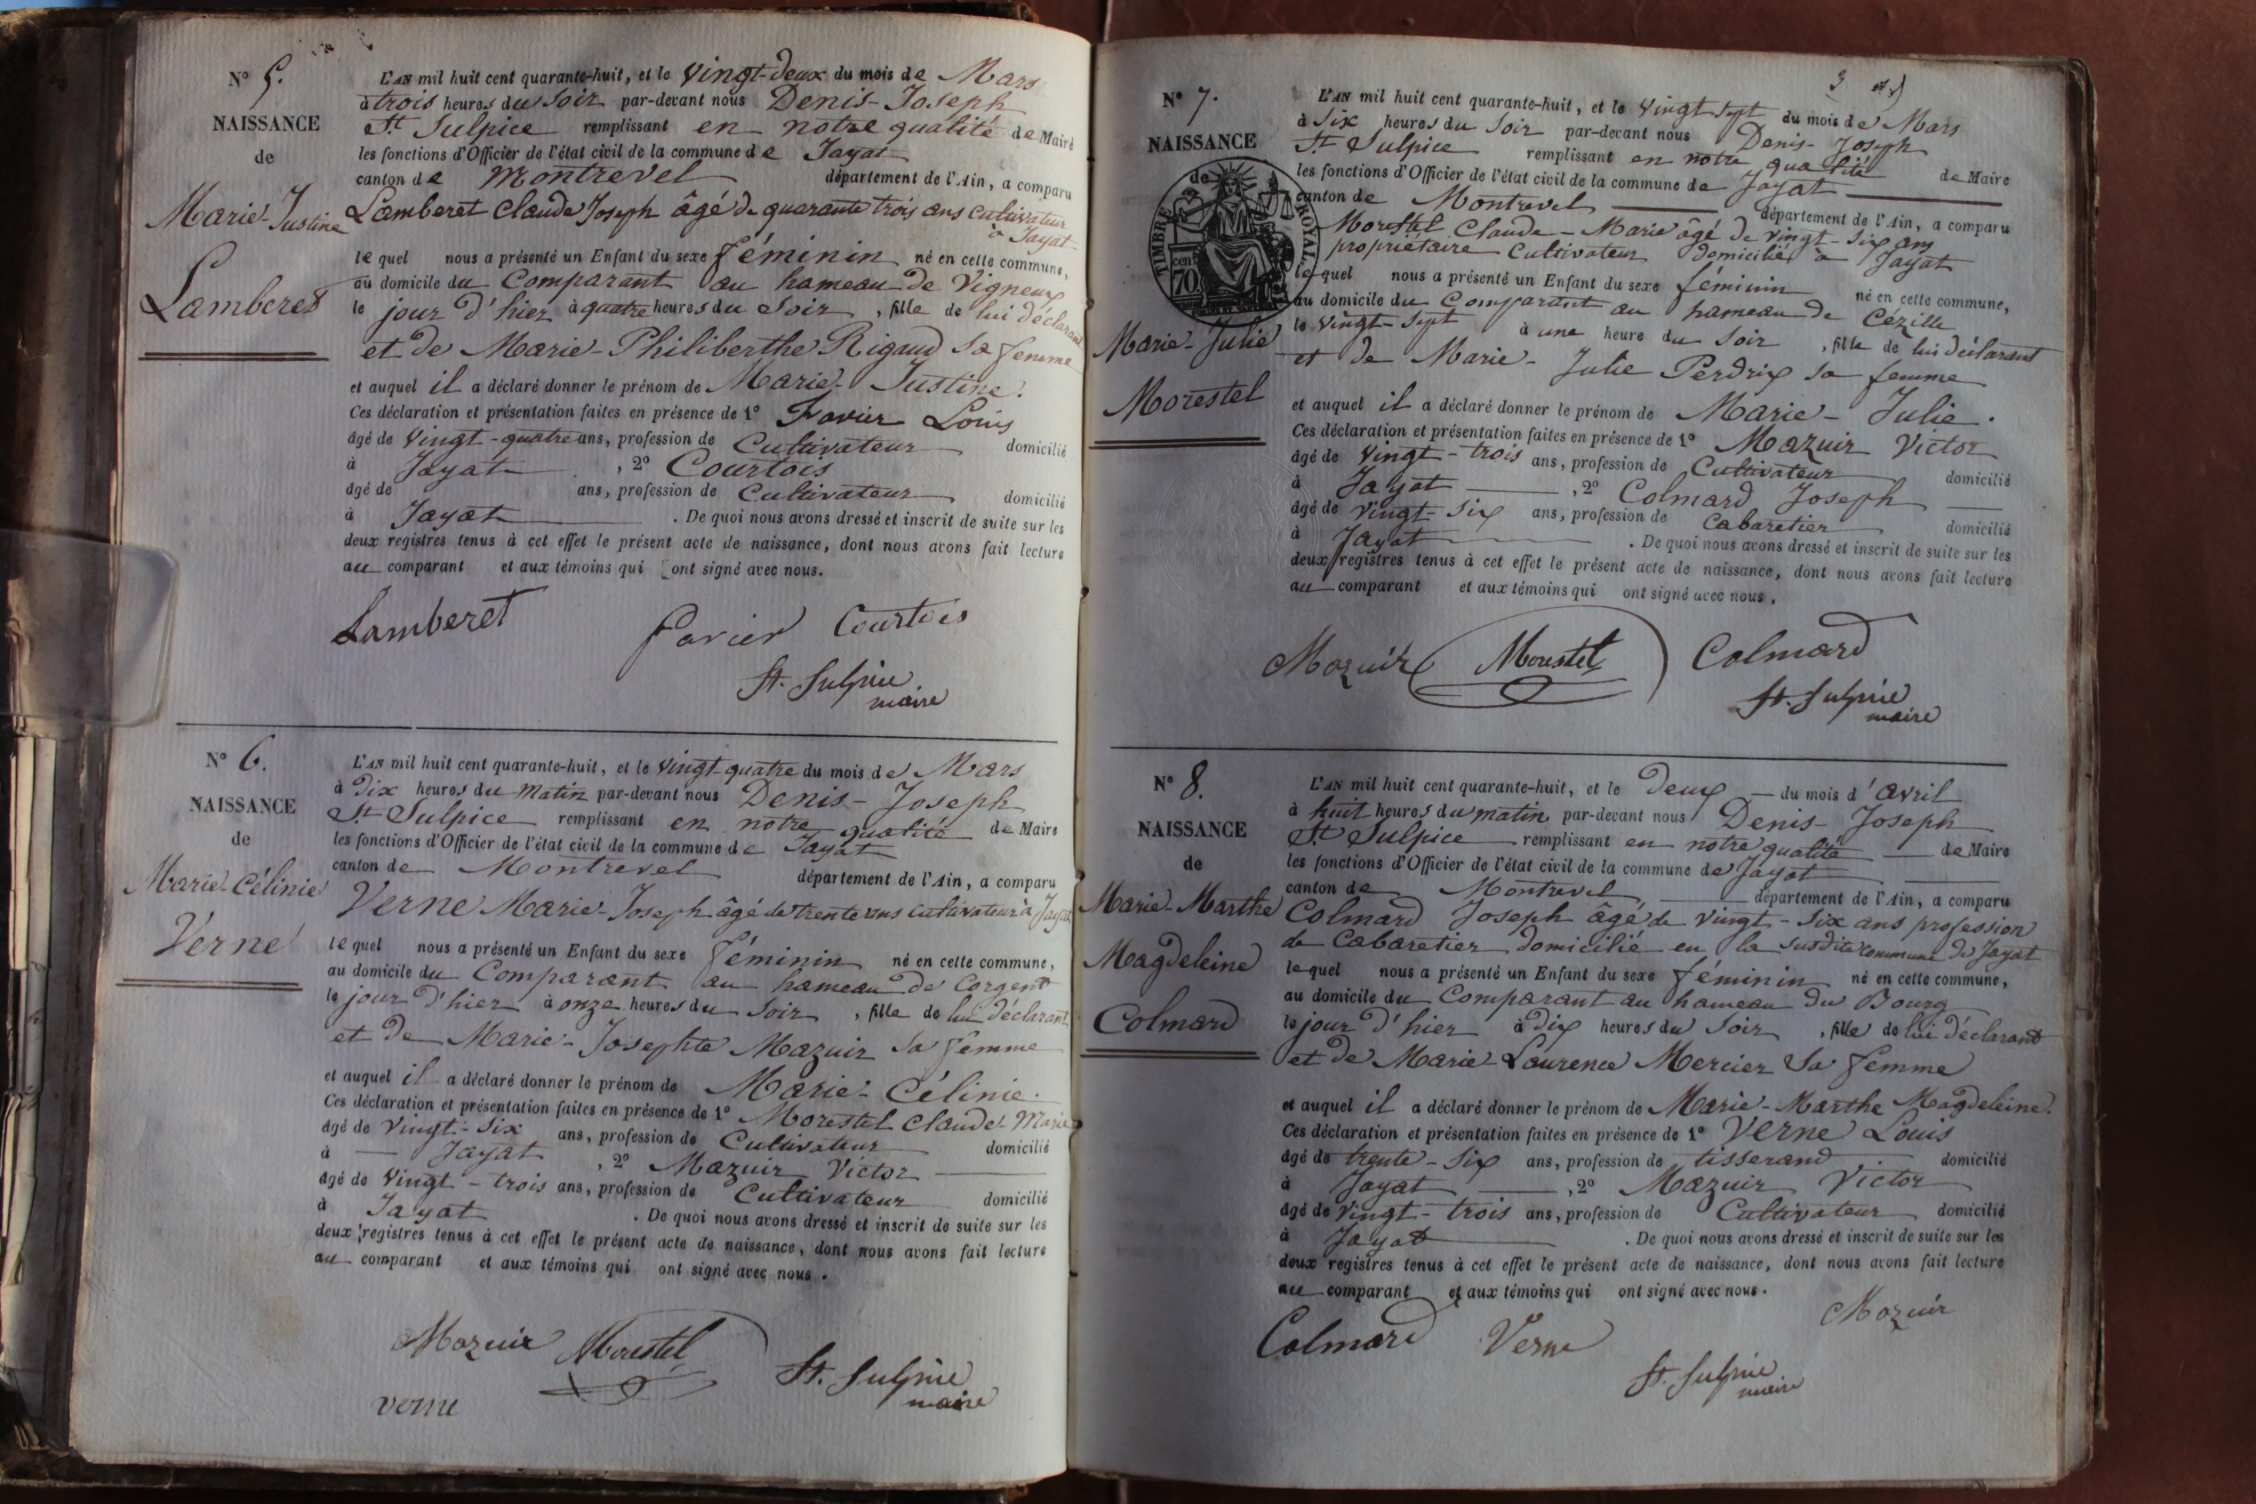 N° 5.
NAISSANCE
de
Marie-Justine
Lamberet
L'AN mil huit cent quarante-huit, et le vingt-deux du mois de Mars
à trois heures du soir par-devant nous Denis-Joseph
St Sulpice remplissant en notre qualité de Maire
les fonctions d'Officier de l'état civil de la commune de Jayat
canton de Montrevel département de l'Ain, a comparu
Lamberet Claude Joseph âgé de quarante trois ans cultivateur
à Jayat
lequel nous a présenté un Enfant du sexe féminin né en cette commune,
au domicile du Comparant au hameau de Vigneux
le jour d'hier à quatre heures du soir, fille de lui déclarant
et de Marie-Philiberthe Rigaud sa femme
et auquel il a déclaré donner le prénom de Marie-Justine.
Ces déclaration et présentation faites en présence de 1° Favier Louis
âgé de vingt-quatre ans, profession de Cultivateur domicilié
à Jayat, 2° Courtois
âgé de ans, profession de Cultivateur domicilié
à Jayat. De quoi nous avons dressé et inscrit de suite sur les
deux registres tenus à cet effet le présent acte de naissance, dont nous avons fait lecture
au comparant et aux témoins qui ont signé avec nous.
Lamberet favier Courtois
St. Sulpice
maire
N° 6.
NAISSANCE
de
Marie-Célinie
Verne
L'AN mil huit cent quarante-huit, et le vingt-quatre du mois de Mars
à dix heures du matin par-devant nous Denis-Joseph
St Sulpice remplissant en notre qualité de Maire
les fonctions d'Officier de l'état civil de la commune de Jayat
canton de Montrevel département de l'Ain, a comparu
Verne Marie-Joseph âgé de trente ans cultivateur à Jayat
lequel nous a présenté un Enfant du sexe féminin né en cette commune,
au domicile du Comparant au hameau de Corgent
le jour d'hier à onze heures du soir, fille de lui déclarant
et de Marie-Josephte Mazuir sa femme
et auquel il a déclaré donner le prénom de Marie-Célinie.
Ces déclaration et présentation faites en présence de 1° Morestel Claude-Marie
âgé de vingt-six ans, profession de Cultivateur domicilié
à Jayat, 2° Mazuir Victor
âgé de vingt-trois ans, profession de Cultivateur domicilié
à Jayat. De quoi nous avons dressé et inscrit de suite sur les
deux registres tenus à cet effet le présent acte de naissance, dont nous avons fait lecture
au comparant et aux témoins qui ont signé avec nous.
Mozuir Morestel St. Sulpice
maire
verne
3
N° 7.
NAISSANCE
de
TIMBRE ROYAL
70 cent
Marie-Julie
Morestel
L'AN mil huit cent quarante-huit, et le vingt sept du mois de Mars
à six heures du soir par-devant nous Denis-Joseph
St Sulpice remplissant en notre qualité de Maire
les fonctions d'Officier de l'état civil de la commune de Jayat
canton de Montrevel département de l'Ain, a comparu
Morestel Claude-Marie âgé de vingt-six ans
propriétaire Cultivateur domicilié à Jayat
lequel nous a présenté un Enfant du sexe féminin né en cette commune,
au domicile du Comparant au hameau de Cézille
le vingt-sept à une heure du soir, fille de lui déclarant
et de Marie-Julie Perdrix sa femme
et auquel il a déclaré donner le prénom de Marie-Julie.
Ces déclaration et présentation faites en présence de 1° Mazuir Victor
âgé de vingt-trois ans, profession de Cultivateur domicilié
à Jayat, 2° Colmard Joseph
âgé de vingt-six ans, profession de cabaretier domicilié
à Jayat. De quoi nous avons dressé et inscrit de suite sur les
deux registres tenus à cet effet le présent acte de naissance, dont nous avons fait lecture
au comparant et aux témoins qui ont signé avec nous.
Mozuir Morestel Colmard
St. Sulpice
maire
N° 8.
NAISSANCE
de
Marie-Marthe
Magdeleine
Colmard
L'AN mil huit cent quarante-huit, et le deux du mois d'avril
à huit heures du matin par-devant nous Denis-Joseph
St Sulpice remplissant en notre qualité de Maire
les fonctions d'Officier de l'état civil de la commune de Jayat
canton de Montrevel département de l'Ain, a comparu
Colmard Joseph âgé de vingt-six ans profession
de Cabaretier domicilié en la susdite commune de Jayat
lequel nous a présenté un Enfant du sexe féminin né en cette commune,
au domicile du Comparant au hameau du Bourg
le jour d'hier à dix heures du soir, fille de lui déclarant
et de Marie-Laurence Mercier sa femme
et auquel il a déclaré donner le prénom de Marie-Marthe Magdeleine.
Ces déclaration et présentation faites en présence de 1° Verne Louis
âgé de trente-six ans, profession de tisserand domicilié
à Jayat, 2° Mazuir Victor
âgé de vingt-trois ans, profession de Cultivateur domicilié
à Jayat. De quoi nous avons dressé et inscrit de suite sur les
deux registres tenus à cet effet le présent acte de naissance, dont nous avons fait lecture
au comparant et aux témoins qui ont signé avec nous.
Colmard Verne Mozuir
St. Sulpice
maire